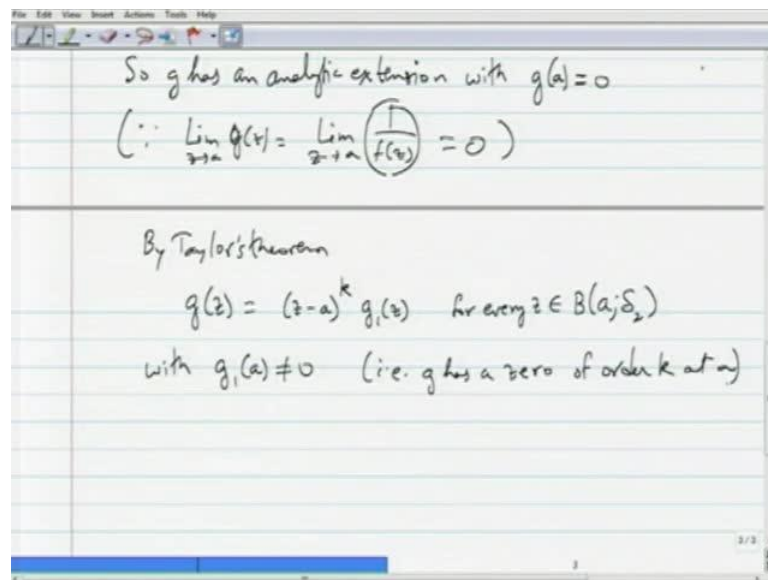 File Edit View Insert Actions Tools Help
So g has an analytic extension with g(a) = 0
(∵ Lim z→a g(z) = Lim z→a 1/f(z) = 0)
By Taylor's theorem
g(z) = (z-a)^k g₁(z) for every z ∈ B(a;δ₂)
with g₁(a) ≠ 0 (i.e. g has a zero of order k at a)
3/3